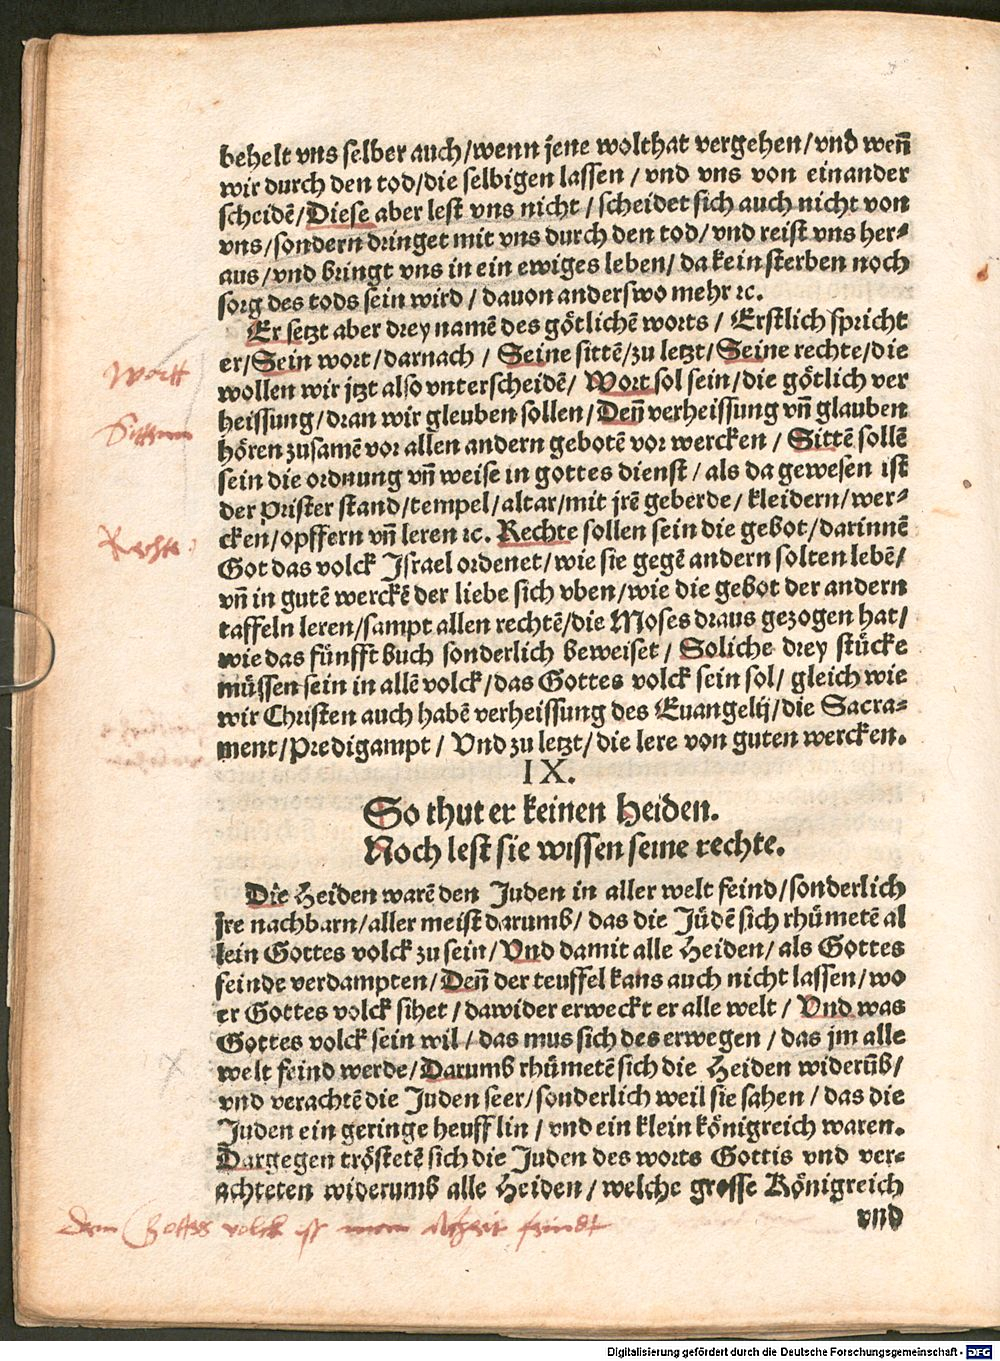 behelt vns selber auch/wenn jene wolthat vergehen/vnd weñ
wir durch den tod/die selbigen lassen / vnd vns von einander
scheidē/Diese aber lest vns nicht / scheidet sich auch nicht von
vns/sondern dringet mit vns durch den tod/ vnd reist vns her-
aus/vnd bringt vns in ein ewiges leben/ da kein sterben noch
sorg des tods sein wird / dauon anderswo mehr ꝛc.
Er setzt aber drey namē des götlichē worts / Erstlich spricht
er/Sein wort/darnach / Seine sittē/zu letzt/Seine rechte/die
wollen wir jtzt also vnterscheidē/ Wort sol sein/die götlich ver
heissung/dran wir gleuben sollen/Deñ verheissung vñ glauben
hören zusamē vor allen andern gebotē vor wercken / Sittē sollē
sein die ordnung vñ weise in gottes dienst/als da gewesen ist
der Prister stand/tempel/altar/mit jrē geberde/ kleidern/wer-
cken/opffern vñ leren ꝛc. Rechte sollen sein die gebot/darinnē
Got das volck Israel ordenet/wie sie gegē andern solten lebē/
vñ in gutē werckē der liebe sich vben/wie die gebot der andern
taffeln leren/sampt allen rechtē/die Moses draus gezogen hat/
wie das fünfft buch sonderlich beweiset/ Soliche drey stücke
müssen sein in allē volck/das Gottes volck sein sol/ gleich wie
wir Christen auch habē verheissung des Euangelij/die Sacra-
ment/Predigampt / Vnd zu letzt/die lere von guten wercken.
IX.
So thut er keinen Heiden.
Noch lest sie wissen seine rechte.
Die Heiden warē den Juden in aller welt feind/sonderlich
jre nachbarn/aller meist darumb/ das die Jüdē sich rhümetē al
lein Gottes volck zu sein/Vnd damit alle Heiden/als Gottes
feinde verdampten/Deñ der teuffel kans auch nicht lassen/wo
er Gottes volck sihet/dawider erweckt er alle welt / Vnd was
Gottes volck sein wil / das mus sich des erwegen / das jm alle
welt feind werde/Darumb rhümetē sich die Heiden widerūb/
vnd verachtē die Juden seer/sonderlich weil sie sahen / das die
Juden ein geringe heufflin / vnd ein klein königreich waren.
Dargegen tröstetē sich die Juden des worts Gottis vnd ver-
achteten widerumb alle Heiden/welche grosse Königreich
vnd
Wortt
Sitten
Rechte
dem Gottes volck ist feindt
Digitalisierung gefördert durch die Deutsche Forschungsgemeinschaft - DFG